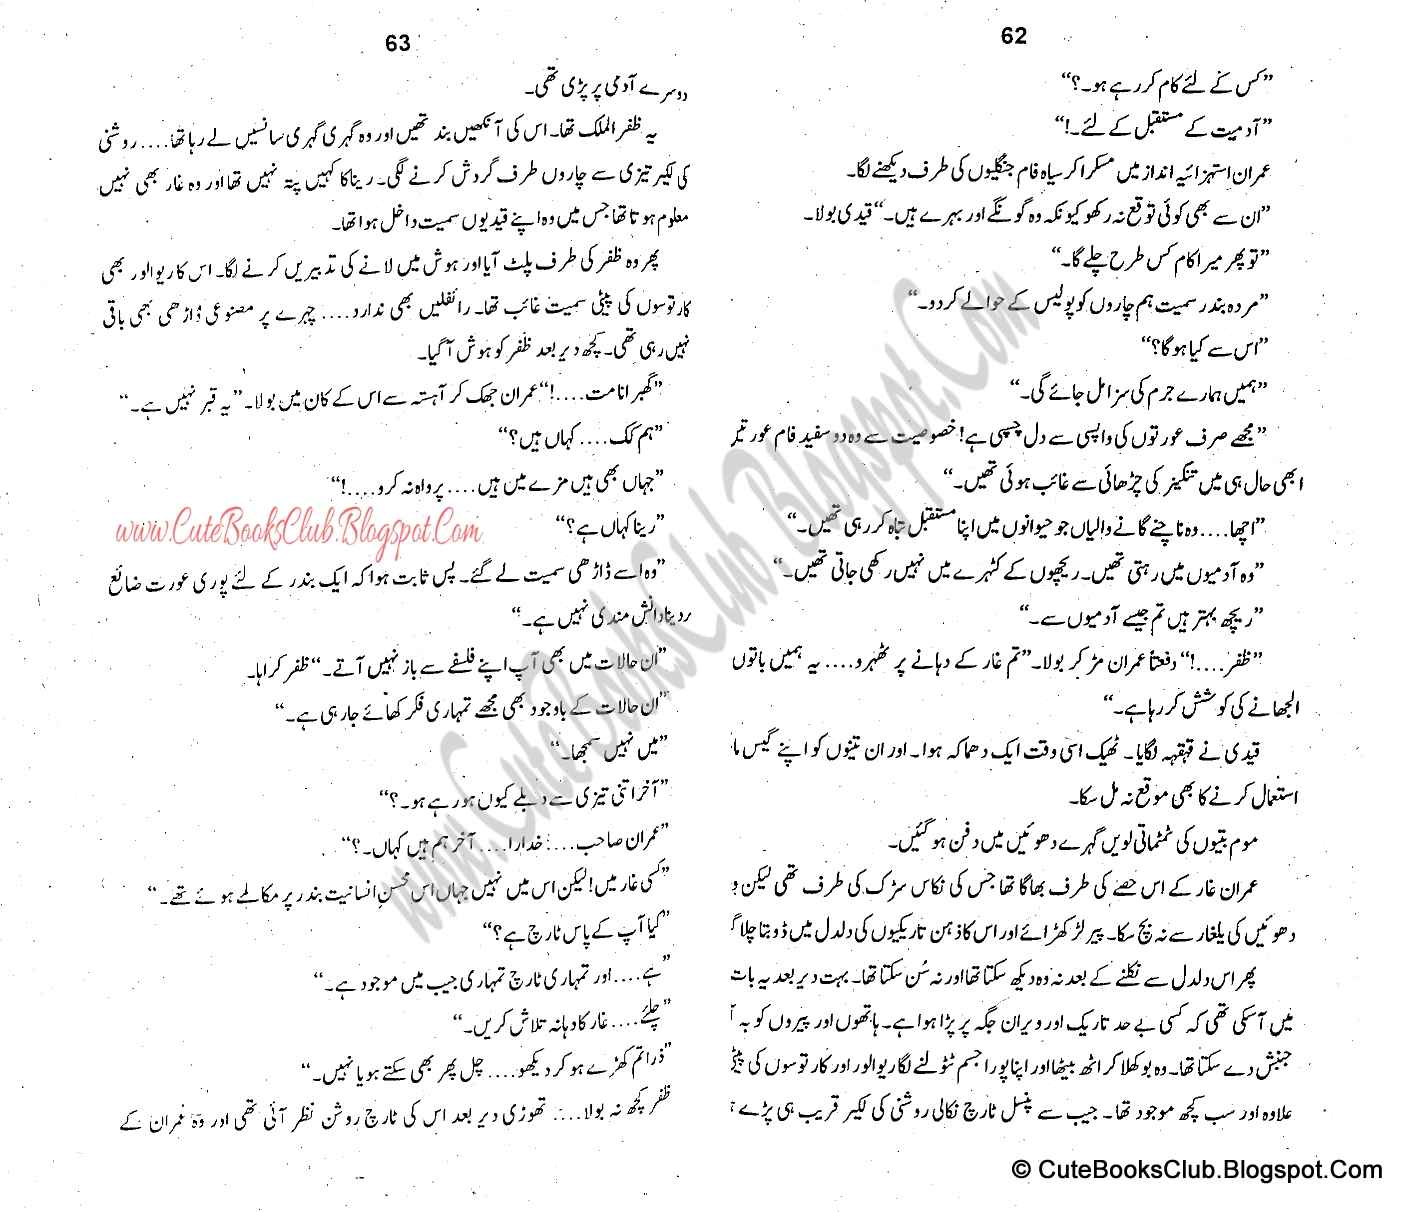 62
”کس کے لئے کام کر رہے ہو۔؟“
”آدمیت کے مستقبل کے لئے۔!“
عمران استہزائیہ انداز میں مسکرا کر سیاہ فام جنگلیوں کی طرف دیکھنے لگا۔
”ان سے بھی کوئی توقع نہ رکھو کیونکہ وہ گونگے اور بہرے ہیں۔“ قیدی بولا۔
”تو پھر میرا کام کس طرح چلے گا۔“
”مردہ بندر سمیت ہم چاروں کو پولیس کے حوالے کر دو۔“
”اس سے کیا ہوگا؟“
”ہمیں ہمارے جرم کی سزا مل جائے گی۔“
”مجھے صرف عورتوں کی واپسی سے دل چسپی ہے! خصوصیت سے وہ دو سفید فام عورتیں
ابھی حال ہی میں تنگینر کی چڑھائی سے غائب ہوئی تھیں۔“
”اچھا.... وہ ناچنے گانے والیاں جو حیوانوں میں اپنا مستقبل تباہ کر رہی تھیں۔“
”وہ آدمیوں میں رہتی تھیں۔ ریچھوں کے کٹہرے میں نہیں رکھی جاتی تھیں۔“
”ریچھ بہتر ہیں تم جیسے آدمیوں سے۔“
”ظفر....!“ دفعتاً عمران مڑ کر بولا۔ ”تم غار کے دہانے پر ٹھہرو.... یہ ہمیں باتوں
الجھانے کی کوشش کر رہا ہے۔“
قیدی نے قہقہہ لگایا۔ ٹھیک اسی وقت ایک دھماکہ ہوا۔ اور ان تینوں کو اپنے گیس ما
استعمال کرنے کا بھی موقع نہ مل سکا۔
موم بتیوں کی ٹمٹماتی لویں گہرے دھوئیں میں دفن ہو گئیں۔
عمران غار کے اس حصے کی طرف بھاگا تھا جس کی نکاس سڑک کی طرف تھی لیکن و
دھوئیں کی یلغار سے نہ بچ سکا۔ پیر لڑکھڑائے اور اس کا ذہن تاریکیوں کی دلدل میں ڈوبتا چلا گ
پھر اس دلدل سے نکلنے کے بعد نہ وہ دیکھ سکتا تھا اور نہ سُن سکتا تھا۔ بہت دیر بعد یہ بات
میں آسکی تھی کہ کسی بے حد تاریک اور ویران جگہ پر پڑا ہوا ہے۔ ہاتھوں اور پیروں کو بہ آ
جنبش دے سکتا تھا۔ وہ بوکھلا کر اٹھ بیٹھا اور اپنا پورا جسم ٹٹولنے لگا ریوالور اور کارتوسوں کی پیٹی
علاوہ اور سب کچھ موجود تھا۔ جیب سے پنسل ٹارچ نکالی روشنی کی لکیر قریب ہی پڑے
63
دوسرے آدمی پر پڑی تھی۔
یہ ظفر الملک تھا۔ اس کی آنکھیں بند تھیں اور وہ گہری گہری سانسیں لے رہا تھا.... روشنی
کی لکیر تیزی سے چاروں طرف گردش کرنے لگی۔ رینا کا کہیں پتہ نہیں تھا اور وہ غار بھی نہیں
معلوم ہوتا تھا جس میں وہ اپنے قیدیوں سمیت داخل ہوا تھا۔
پھر وہ ظفر کی طرف پلٹ آیا اور ہوش میں لانے کی تدبیریں کرنے لگا۔ اس کا ریوالور بھی
کارتوسوں کی پیٹی سمیت غائب تھا۔ رائفلیں بھی ندارد.... چہرے پر مصنوعی ڈاڑھی بھی باقی
نہیں رہی تھی۔ کچھ دیر بعد ظفر کو ہوش آ گیا۔
”گھبرانا مت....!“ عمران جھک کر آہستہ سے اس کے کان میں بولا۔ ”یہ قبر نہیں ہے۔“
”ہم کک.... کہاں ہیں؟“
”جہاں بھی ہیں مزے میں ہیں.... پرواہ نہ کرو....!“
”رینا کہاں ہے؟“
www.CuteBooksClub.Blogspot.Com
”وہ اسے ڈاڑھی سمیت لے گئے۔ پس ثابت ہوا کہ ایک بندر کے لئے پوری عورت ضائع
ردینا دانش مندی نہیں ہے۔“
”ان حالات میں بھی آپ اپنے فلسفے سے باز نہیں آتے۔“ ظفر کراہا۔
”ان حالات کے باوجود بھی مجھے تمہاری فکر کھائے جا رہی ہے۔“
”میں نہیں سمجھا۔“
”آخر اتنی تیزی سے دبلے کیوں ہو رہے ہو۔؟“
”عمران صاحب.... خدارا.... آخر ہم ہیں کہاں۔؟“
”کسی غار میں! لیکن اس میں نہیں جہاں اس محسنِ انسانیت بندر پر مکالمے ہوئے تھے۔“
”کیا آپ کے پاس ٹارچ ہے؟“
”ہے.... اور تمہاری ٹارچ تمہاری جیب میں موجود ہے۔“
”چلئے.... غار کا دہانہ تلاش کریں۔“
”ذرا تم کھڑے ہو کر دیکھو.... چل پھر بھی سکتے ہو یا نہیں۔“
ظفر کچھ نہ بولا.... تھوڑی دیر بعد اس کی ٹارچ روشن نظر آئی تھی اور وہ عمران کے
www.CuteBooksClub.Blogspot.Com
© CuteBooksClub.Blogspot.Com